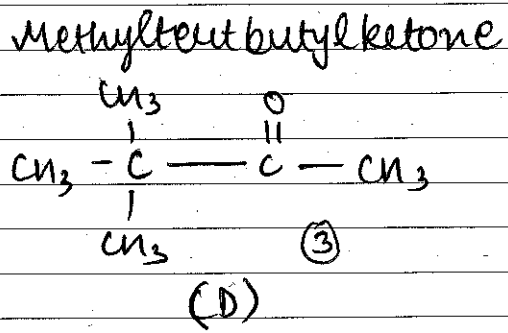 Methyltertbutylketone
CH3 O
CH3 - C — C — CH3
CH3 3
(D)